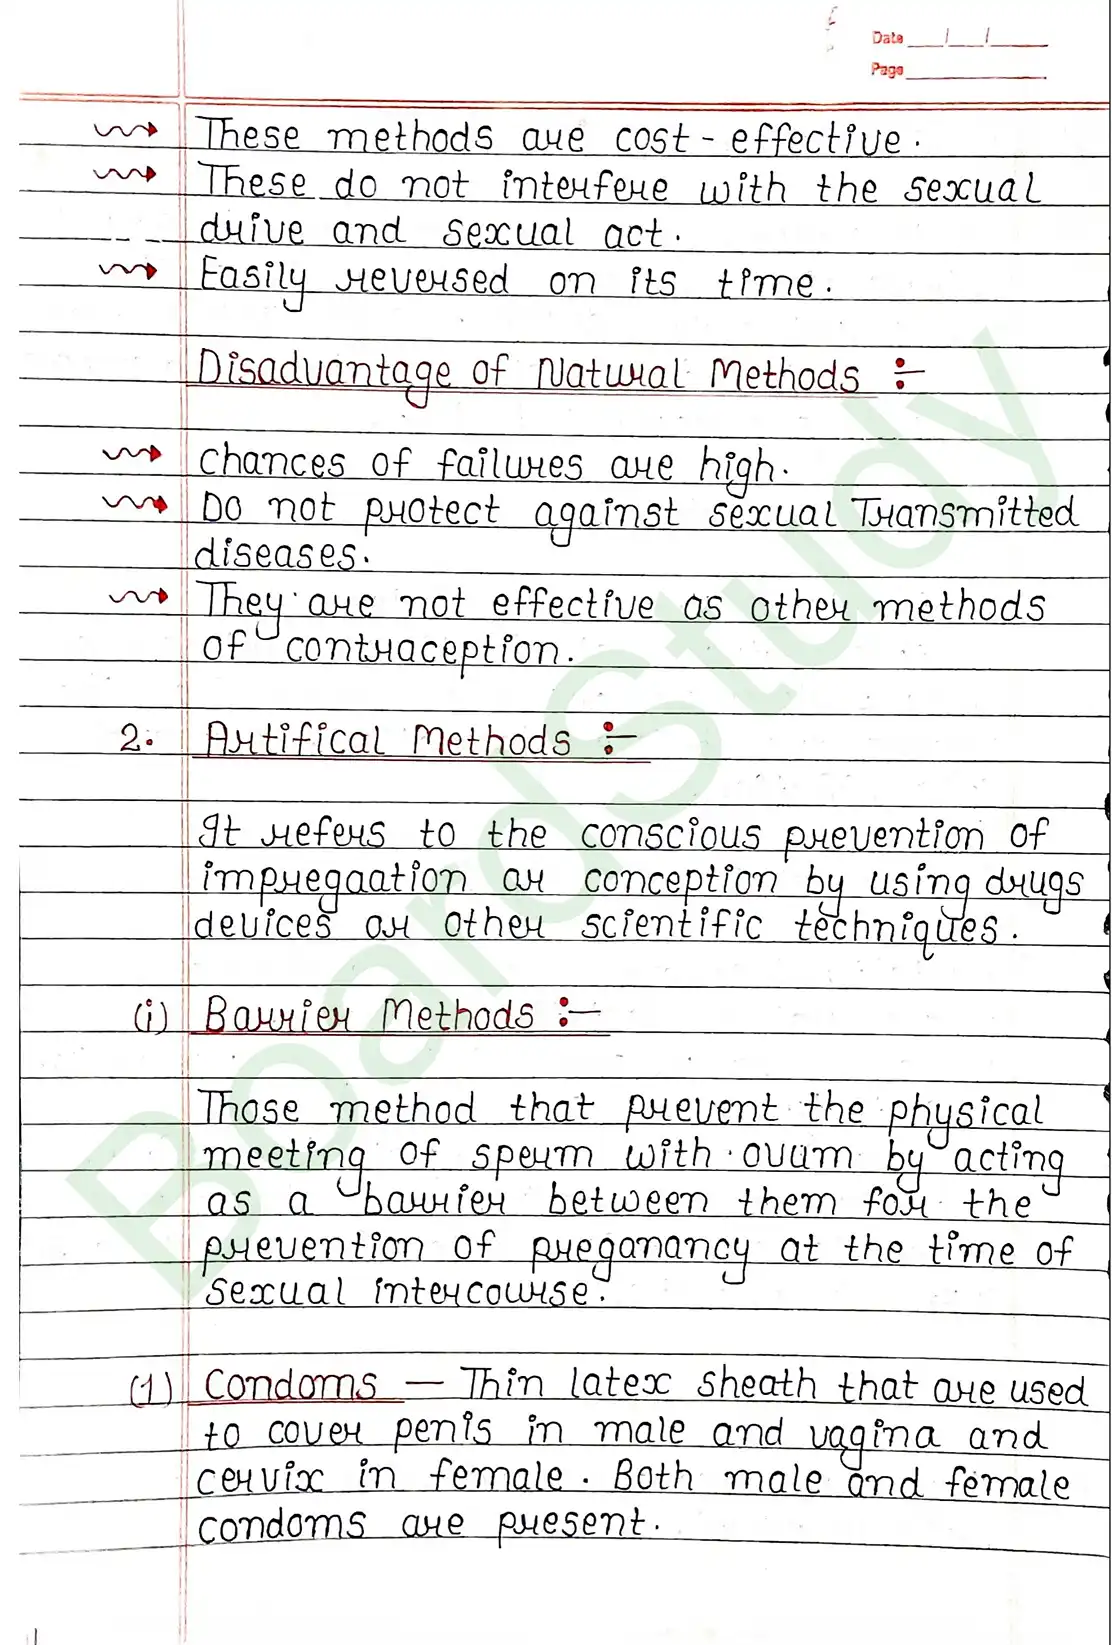 Date __/__/____
Page ________
These methods are cost - effective.
These do not interfere with the sexual
drive and sexual act.
Easily reversed on its time.
Disadvantage of Natural Methods :-
Chances of failures are high.
Do not protect against sexual Transmitted
diseases.
They are not effective as other methods
of contraception.
2. Artifical Methods :-
It refers to the conscious prevention of
impregaation or conception by using drugs
devices or other scientific techniques.
(i) Barrier Methods :-
Those method that prevent the physical
meeting of sperm with ovum by acting
as a barrier between them for the
prevention of preganancy at the time of
sexual intercourse.
(1) Condoms — Thin latex sheath that are used
to cover penis in male and vagina and
cervix in female. Both male and female
condoms are present.
BoardStudy